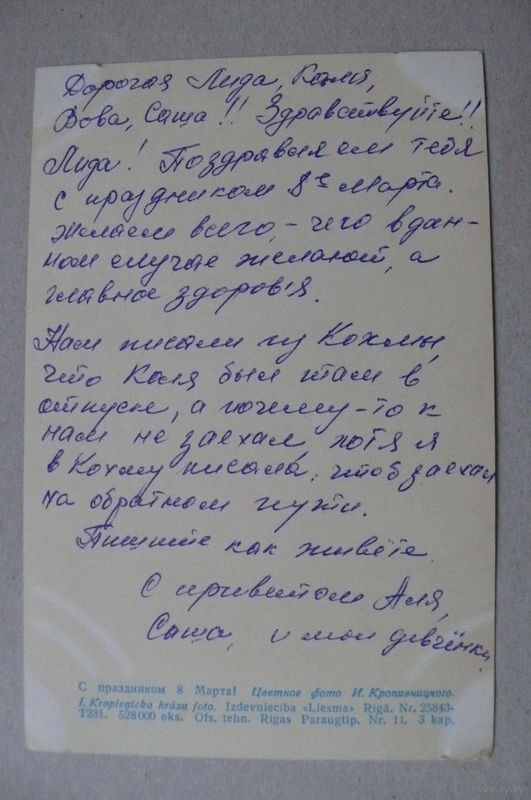 Дорогая Лида, Коля,
Вова, Саша!! Здравствуйте!!
Лида! Поздравляем тебя
с праздником 8е Марта.
Желаем всего, - чего в дан-
ном случае желают, а
главное здоровья.
Нам писали из Кохмы,
что Коля был там в
отпуске, а почему-то к
нам не заехал, хотя я
в Кохму писала, чтоб заехал
на обратном пути.
Пишите как живёте.
С приветом Аля,
Саша, и мои девчёнки.
С праздником 8 Марта! Цветное фото И. Кропивницкого.
I. Kropivnicka krāsu foto. Izdevniecība «Liesma» Rīgā. Nr. 25843-
T231. 528000 eks. Ofs. tehn. Rīgas Paraugtip. Nr. 11. 3 kap.
www.ay.by